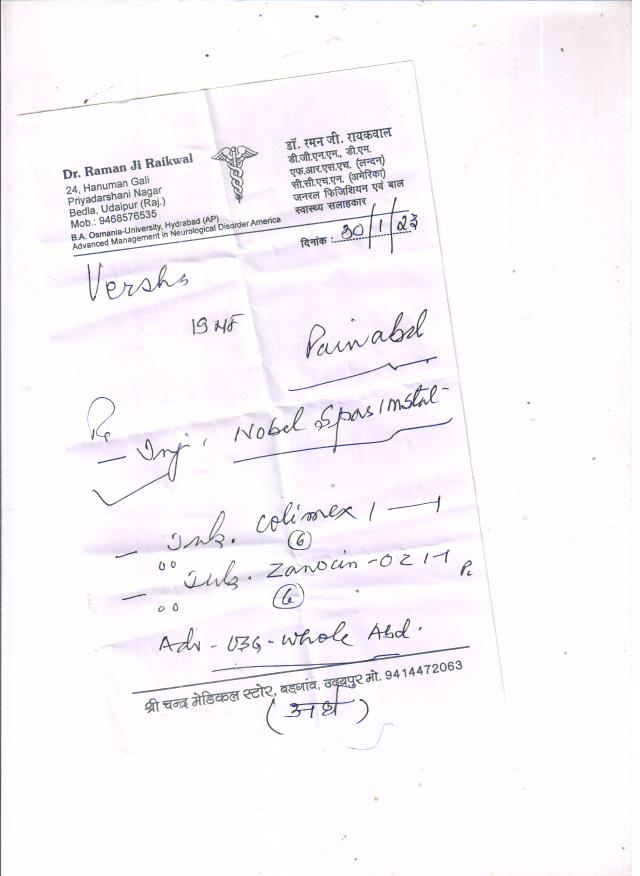 Dr. Raman Ji Raikwal
24, Hanuman Gali
Priyadarshani Nagar
Bedla, Udaipur (Raj.)
Mob.: 9468576535
B.A. Osmania-University, Hydrabad (AP)
Advanced Management in Neurological Disorder America
डॉ. रमन जी. रायकवाल
डी.जी.एन.एम., डी.एम.
एफ.आर.एस.एच. (लन्दन)
सी.सी.एच.एन. (अमेरिका)
जनरल फिजिशियन एवं बाल
स्वास्थ्य सलाहकार
दिनांक : 30/1/23
Versha
19
Pain abd
Rx
Inj. Nobel Spas / Instal-
Tab. Colimex 1 — 1
6
Tab. Zanocin-OZ 1-1
6
Adv - USG - Whole Abd.
श्री चन्द्र मेडिकल स्टोर, बड़गांव, उदयपुर मो. 9414472063